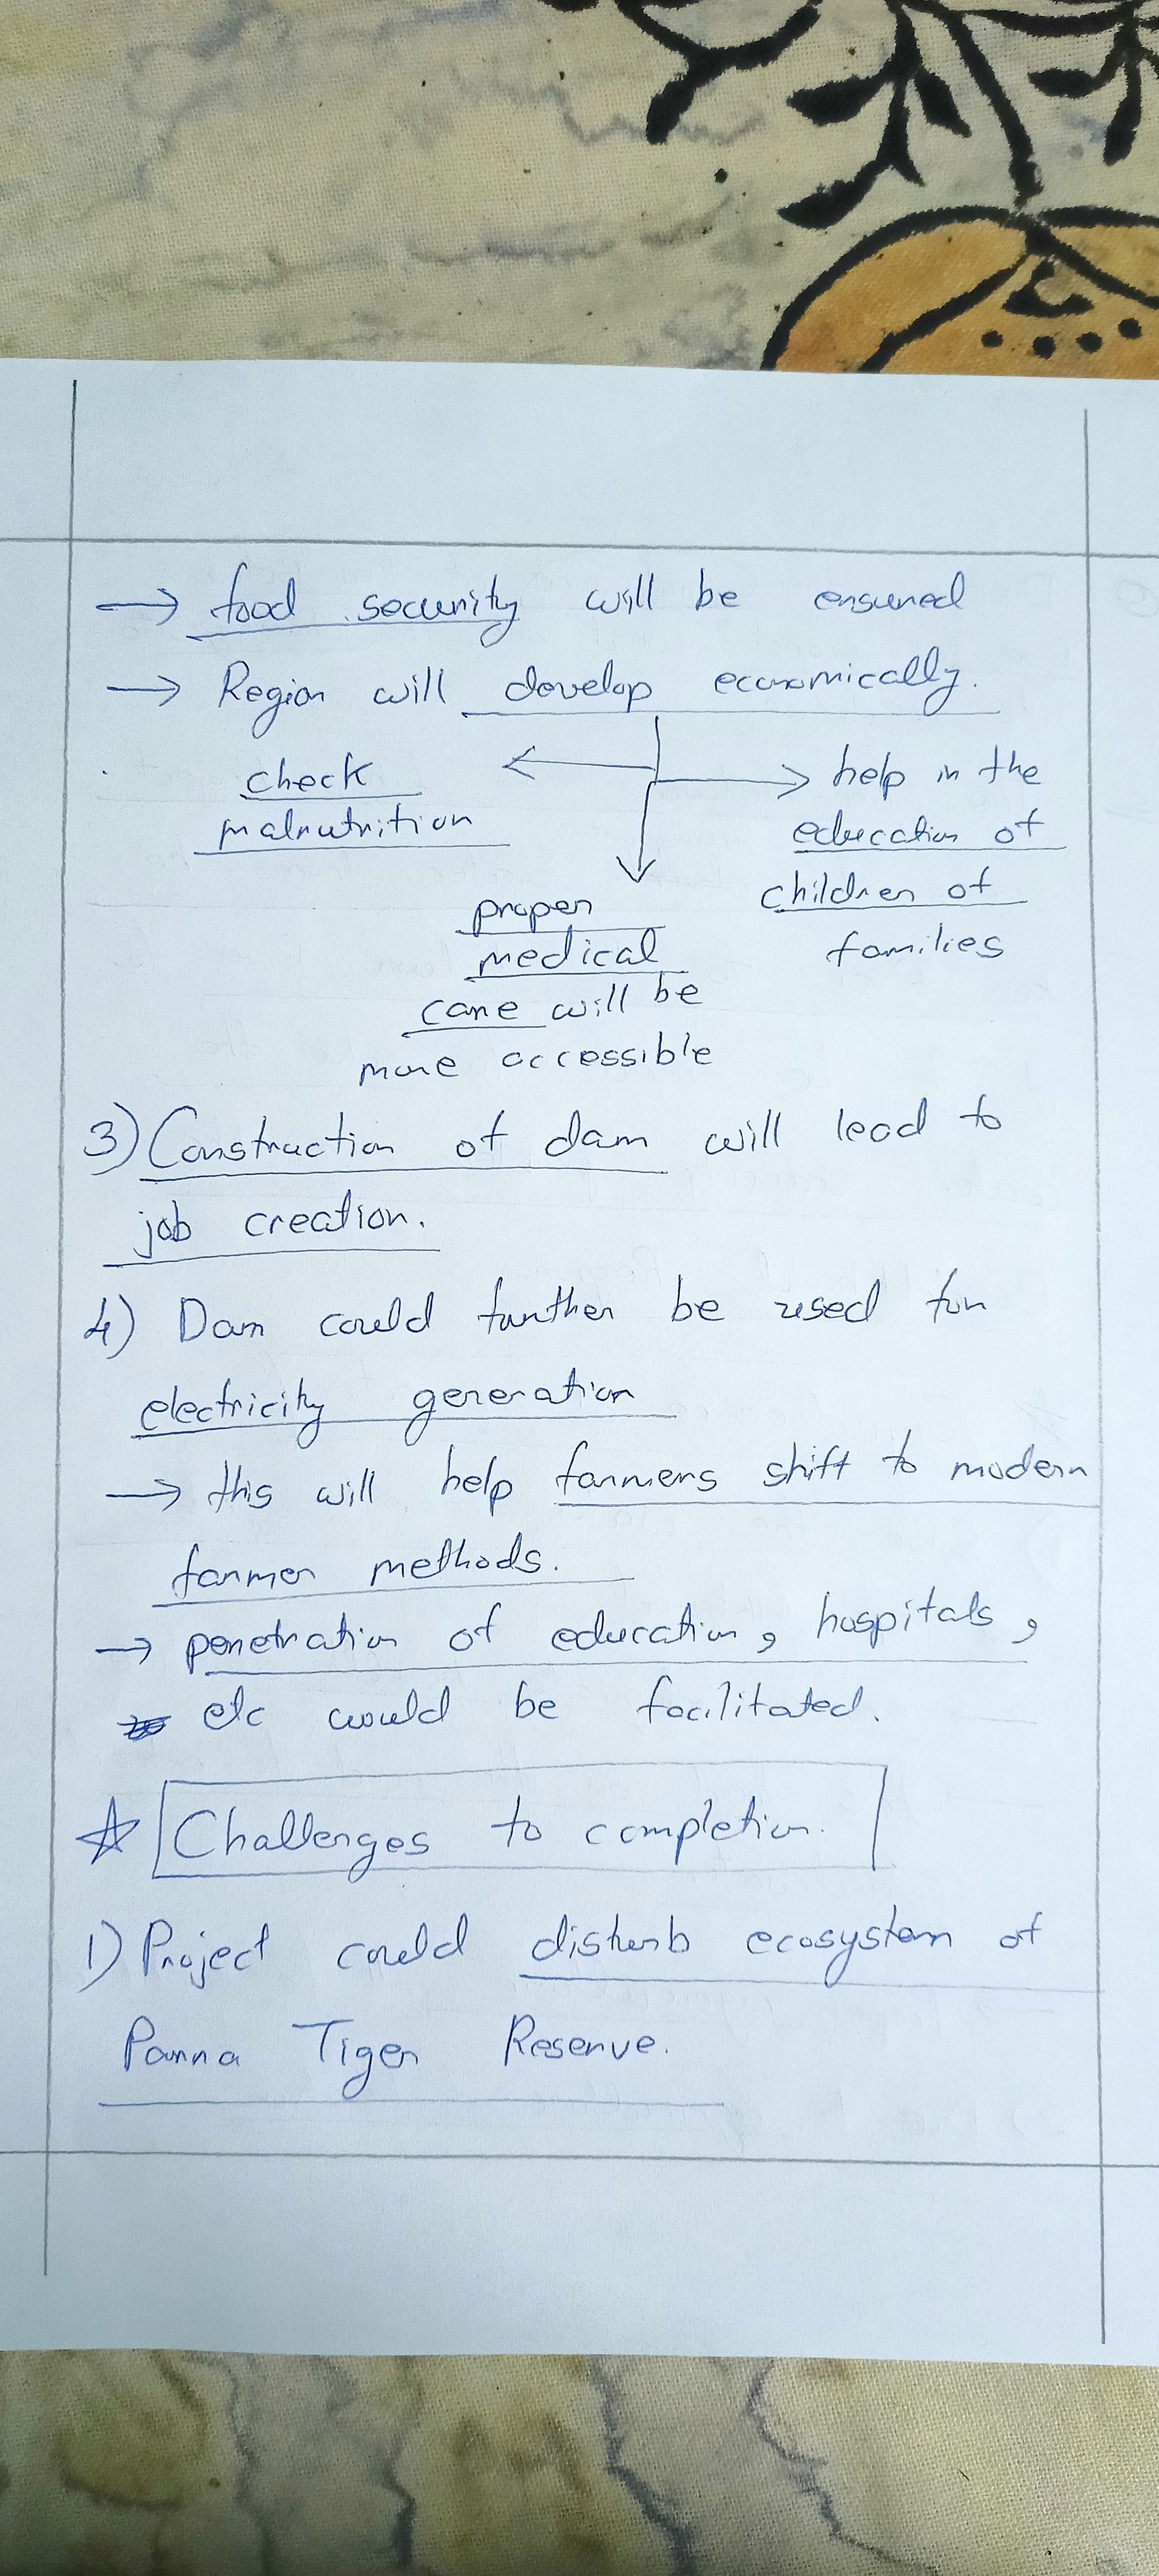 → food security will be ensured
→ Region will develop economically.
check
malnutrition
proper
medical
care will be
more accessible
help in the
education of
children of
families
3) Construction of dam will lead to
job creation.
4) Dam could further be used for
electricity generation
→ this will help farmers shift to modern
farmer methods.
→ penetration of education, hospitals,
etc would be facilitated.
☆ Challenges to completion.
1) Project could disturb ecosystem of
Panna Tiger Reserve.